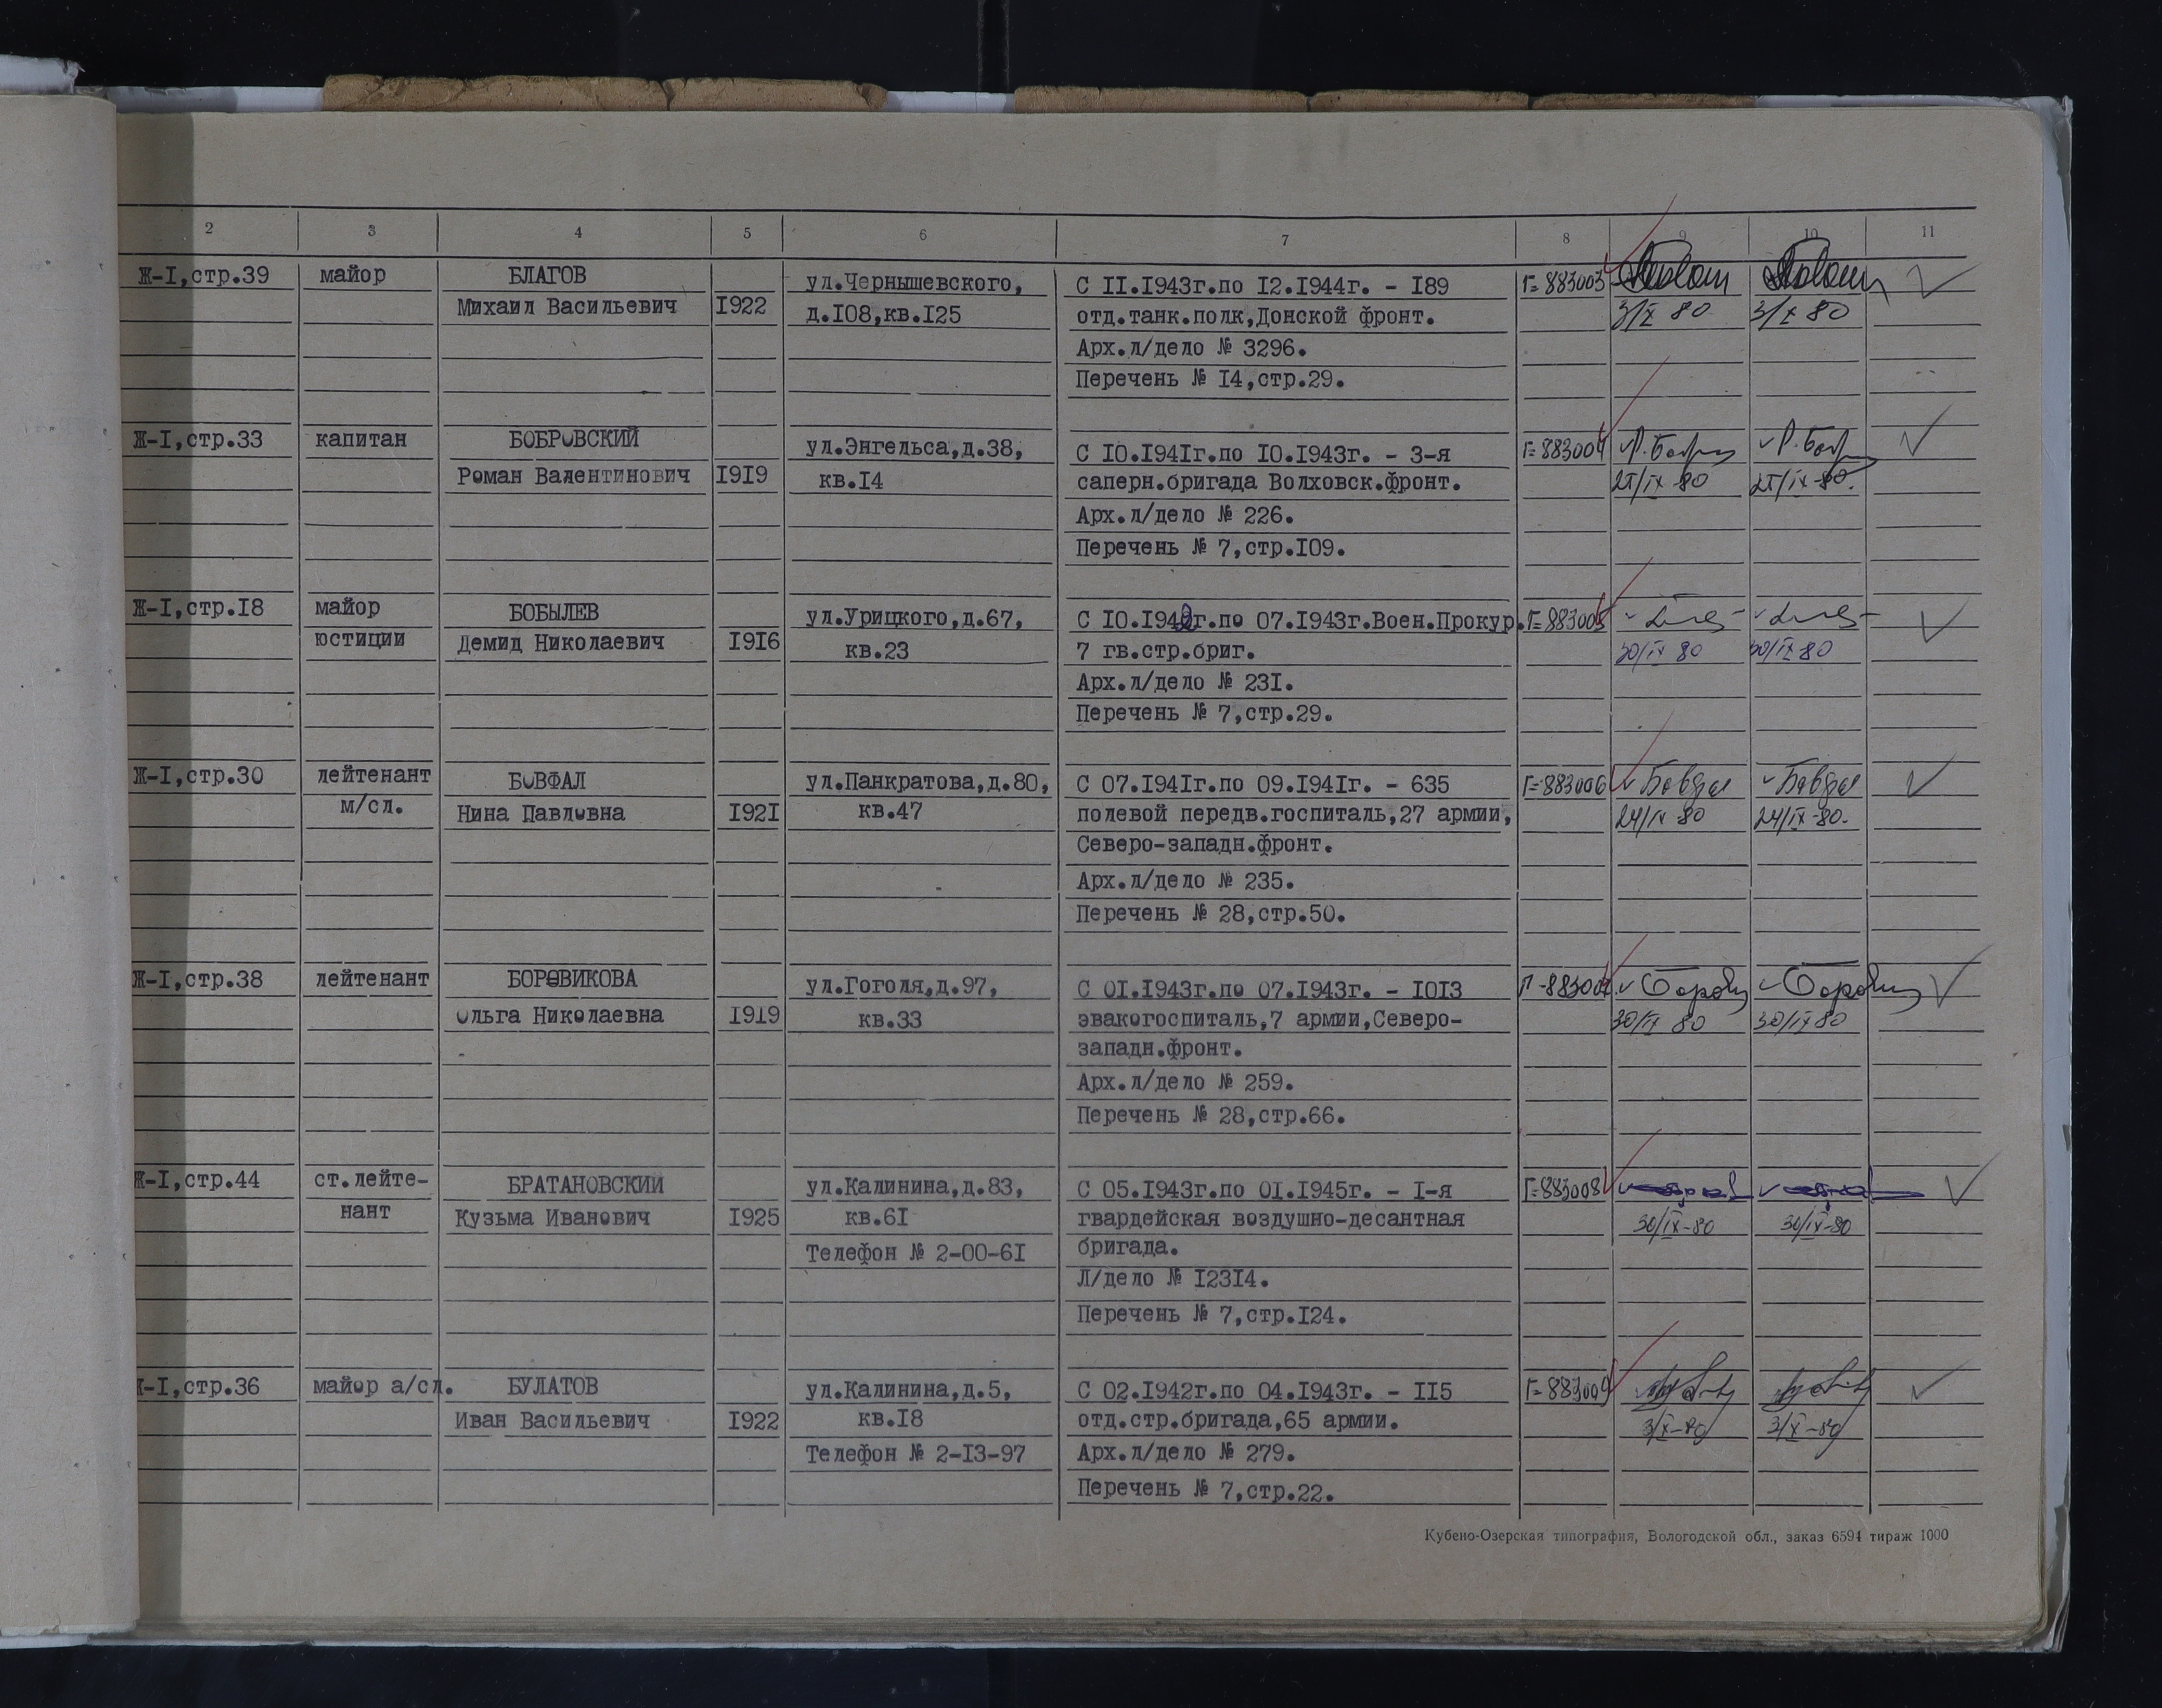 2 3 4 5 6 7 8 9 10 11
Ж-I,стр.39 майор БЛАГОВ ул.Чернышевского, С II.I943г.по I2.I944г. - I89 Г=883003
Михаил Васильевич I922 д.I08,кв.I25 отд.танк.полк,Донской фронт. 3/X 80 3/X 80
Арх.л/дело № 3296.
Перечень № I4,стр.29.
Ж-I,стр.33 капитан БОБРОВСКИЙ ул.Энгельса,д.38, С I0.I94Iг.по I0.I943г. - 3-я Г=883004
Роман Валентинович I9I9 кв.I4 саперн.бригада Волховск.фронт.
Арх.л/дело № 226.
Перечень № 7,стр.I09.
Ж-I,стр.I8 майор БОБЫЛЕВ ул.Урицкого,д.67, С I0.I942г.по 07.I943г.Воен.Прокур. Г=883005
юстиции Демид Николаевич I9I6 кв.23 7 гв.стр.бриг. 30/IX 80 30/IX 80
Арх.л/дело № 23I.
Перечень № 7,стр.29.
Ж-I,стр.30 лейтенант БОВФАЛ ул.Панкратова,д.80, С 07.I94Iг.по 09.I94Iг. - 635 Г=883006
м/сл. Нина Павловна I92I кв.47 полевой передв.госпиталь,27 армии, 24/IX 80 24/IX-80.
Северо-западн.фронт.
Арх.л/дело № 235.
Перечень № 28,стр.50.
Ж-I,стр.38 лейтенант БОРОВИКОВА ул.Гоголя,д.97, С 0I.I943г.по 07.I943г. - I0I3
Ольга Николаевна I9I9 кв.33 эвакогоспиталь,7 армии,Северо- 30/IX 80 30/IX 80
западн.фронт.
Арх.л/дело № 259.
Перечень № 28,стр.66.
Ж-I,стр.44 ст.лейте- БРАТАНОВСКИЙ ул.Калинина,д.83, С 05.I943г.по 0I.I945г. - I-я Г=883008
нант Кузьма Иванович I925 кв.6I гвардейская воздушно-десантная 30/IX-80 30/IX-80
Телефон № 2-00-6I бригада.
Л/дело № I23I4.
Перечень № 7,стр.I24.
Ж-I,стр.36 майор а/сл. БУЛАТОВ ул.Калинина,д.5, С 02.I942г.по 04.I943г. - II5 Г=883009
Иван Васильевич I922 кв.I8 отд.стр.бригада,65 армии. 3/X-80 3/X-80
Телефон № 2-I3-97 Арх.л/дело № 279.
Перечень № 7,стр.22.
Кубено-Озерская типография, Вологодской обл., заказ 6594 тираж 1000